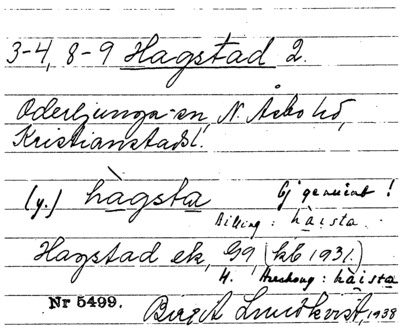 3-4, 8-9 Hagstad 2.
Oderljunga sn, N. Åsbo hd,
Kristianstads l.
(y.) hàgsta Ej genuint!
Billing: hàista.
Hagstad ek, G9, (kb 1931.)
H. : hàista
Nr 5499. Birgit Lundkvist, 1938